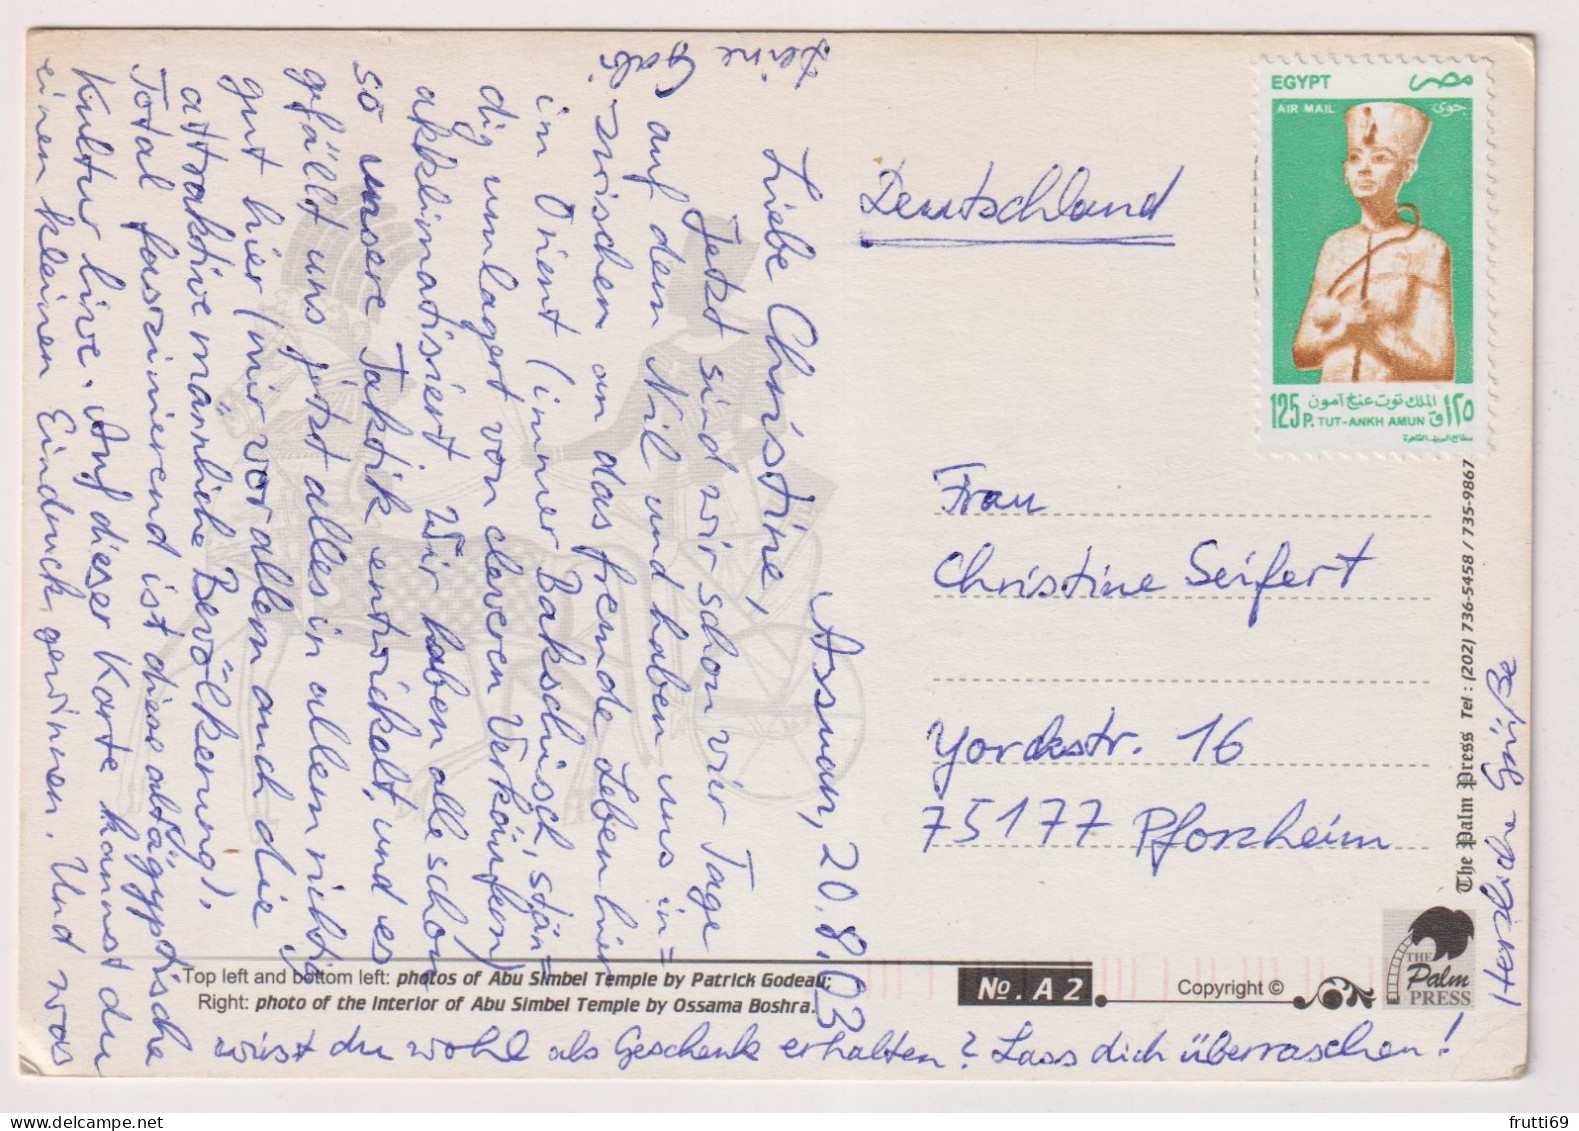 Assuan, 20.8.03
Liebe Christine,
Jetzt sind wir schon vier Tage
auf dem Nil und haben uns in=
zwischen an das fremde Leben hier
im Orient (immer Bakschisch, stän=
dig umlagert von cleveren Verkäufern)
akklimatisiert. Wir haben alle schon
so unsere Taktik entwickelt, und es
gefällt uns jetzt alles in allem richtig
gut hier (mir vor allem auch die
attraktive männliche Bevölkerung!).
Total faszinierend ist diese altägyptische
Kultur hive. Auf dieser Karte kannst du
einen kleinen Eindruck gewinnen. Und was
wirst du wohl als Geschenk erhalten? Lass dich überraschen!
Herzliche Grüße
Deine
Gabi
Deutschland
EGYPT مصر
AIR MAIL جوى
125 P. الملك توت عنخ آمون ١٢٥ ق
TUT-ANKH AMUN
Frau
Christine Seifert
Yorckstr. 16
75177 Pforzheim
The Palm Press Tel : (202) 736-5458 / 735-9867
Top left and bottom left: photos of Abu Simbel Temple by Patrick Godeau;
Right: photo of the interior of Abu Simbel Temple by Ossama Boshra.
No. A 2
Copyright ©
THE
Palm
PRESS
frutti69